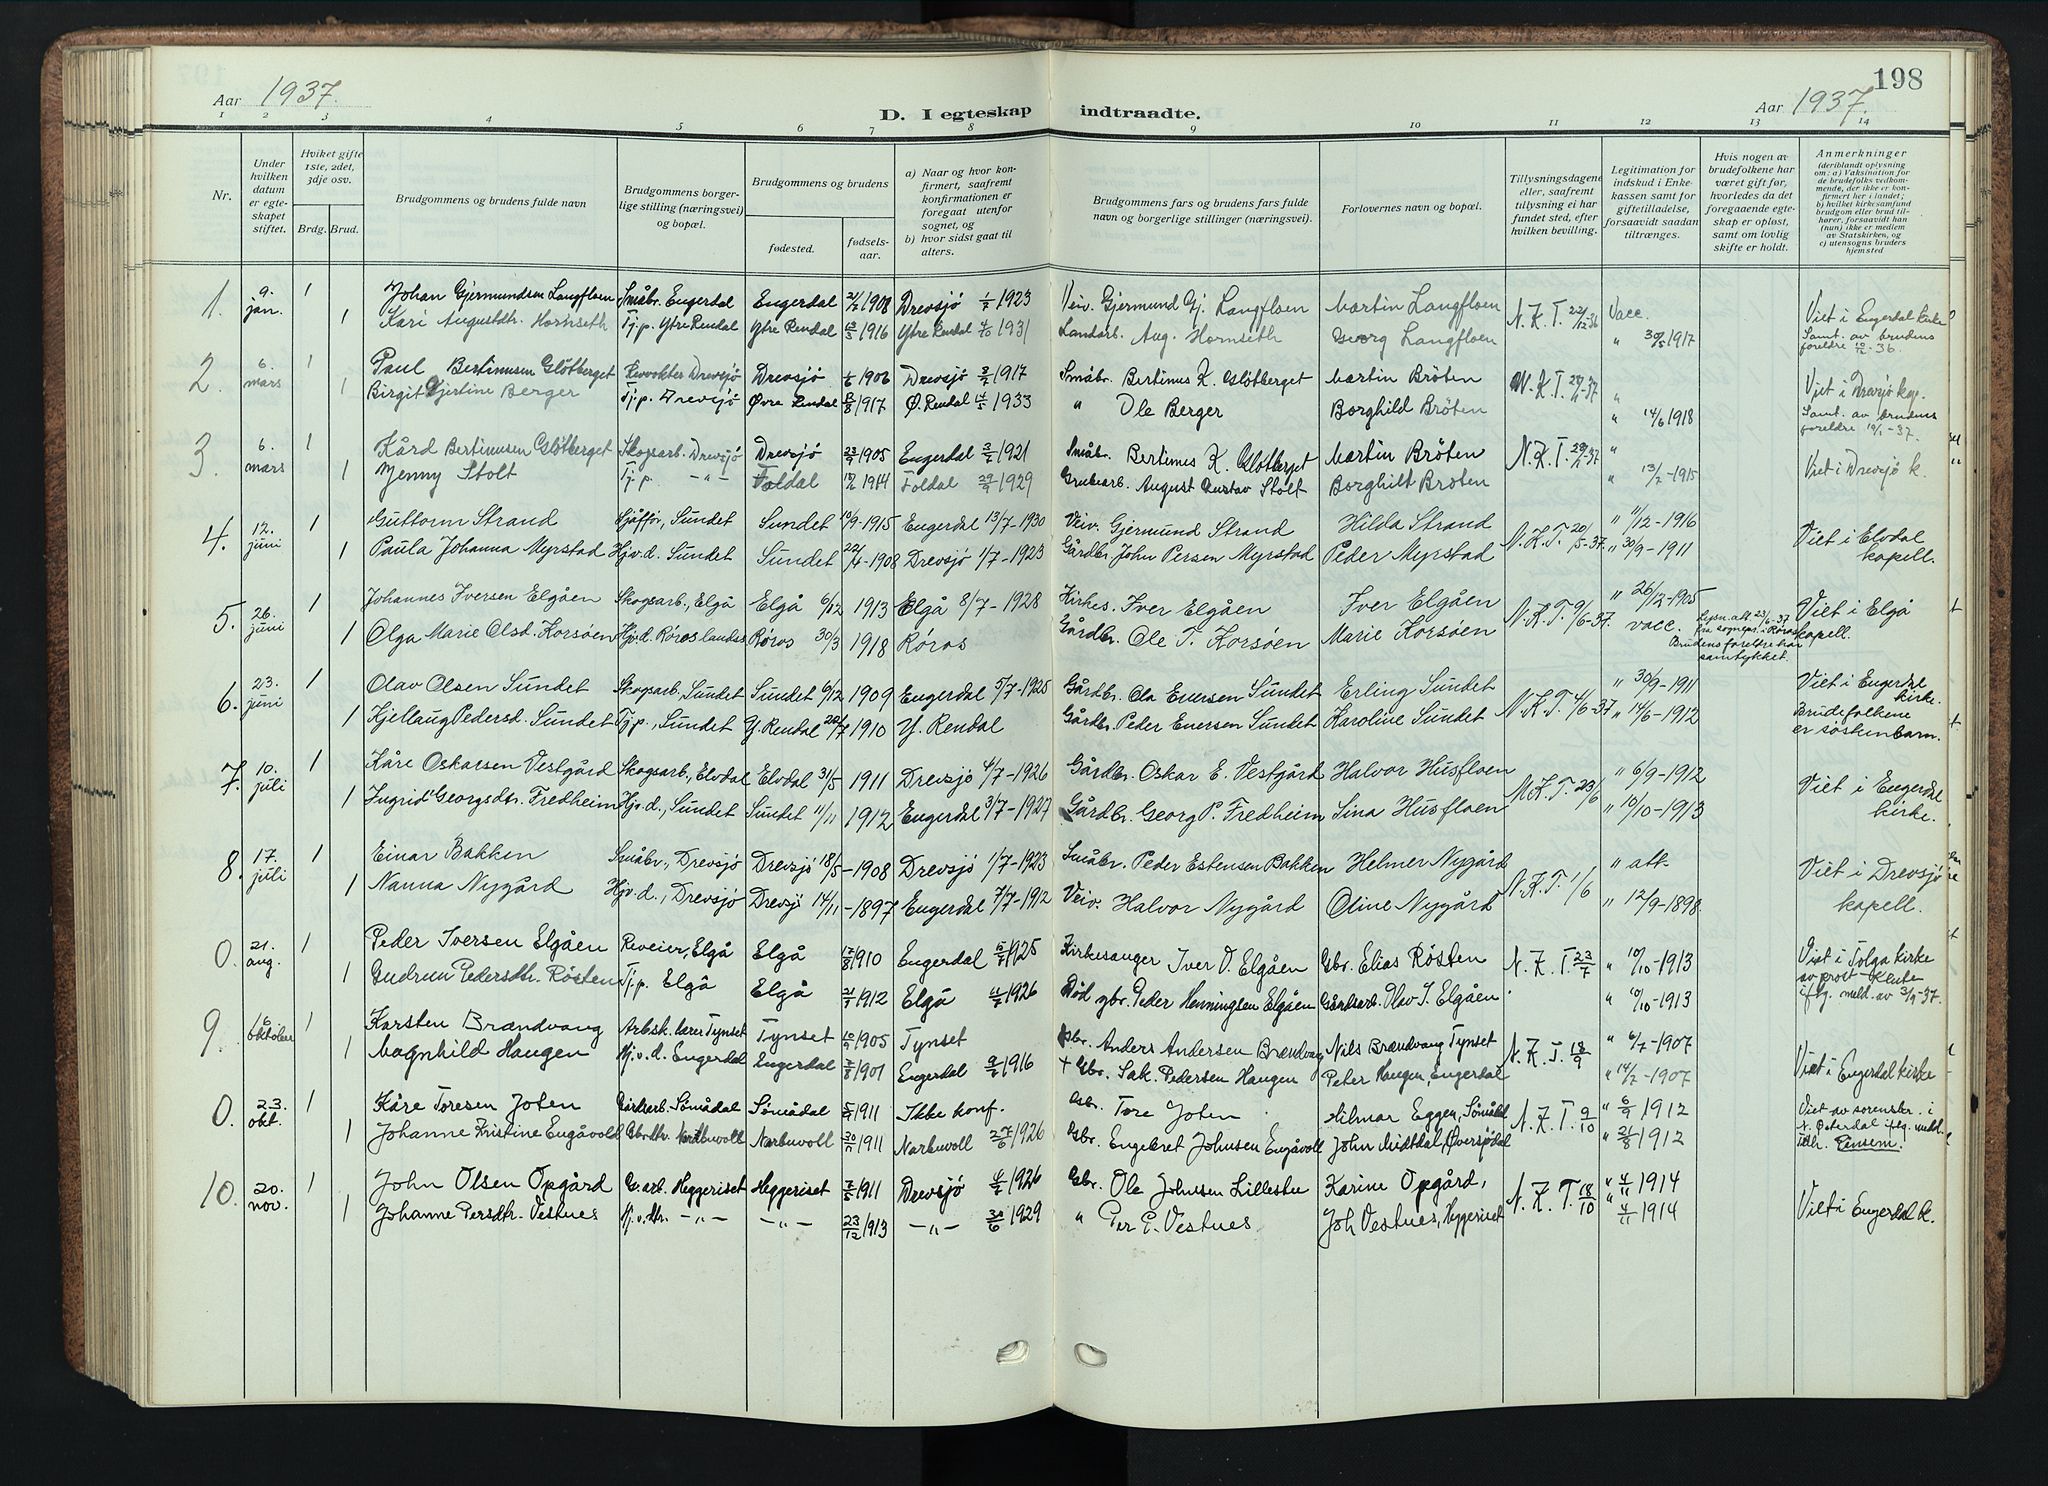 198
Aar 1937.
D. I egteskap indtraadte.
Aar 1937.
1 2 3 4 5 6 7 8 9 10 11 12 13 14
Nr.
Under hvilken datum er egteskapet stiftet.
Hviket gifte 1ste, 2det, 3dje osv.
Brdg. Brud.
Brudgommens og brudens fulde navn
Brudgommens borgerlige stilling (næringsvei) og bopæl.
Brudgommens og brudens
fødested.
fødselsaar.
a) Naar og hvor konfirmert, saafremt konfirmationen er foregaat utenfor sognet, og
b) hvor sidst gaat til alters.
Brudgommens fars og brudens fars fulde navn og borgerlige stillinger (næringsvei).
Forlovernes navn og bopæl.
Tillysningsdagene eller, saafremt tillysning ei har fundet sted, efter hvilken bevilling.
Legitimation for indskud i Enkekassen samt for giftetilladelse, forsaavidt saadan tiltrænges.
Hvis nogen av brudefolkene har været gift før, hvorledes da det foregaaende egteskap er opløst, samt om lovlig skifte er holdt.
Anmerkninger
(deriblandt oplysning om: a) Vaksination for de brudefolks vedkommende, der ikke er konfirmert her i landet; b) hvilket kirkesamfund brudgom eller brud tilhører, forsaavidt han (hun) ikke er medlem av Statskirken, og c) utensogns bruders hjemsted
1. 9. jan. 1 Johan Gjermundsen Langfloen Småbr. Engerdal Engerdal 1908 Drevsjø 1/7 1923 Veiv. Gjermund Gj. Langfloen Martin Langfloen N.K.T. 22/12-36 Vacc. Viet i Engerdal kirke
1 Kari Augustdtr. Hornseth Tj.p. Ytre Rendal Ytre Rendal 1916 Ytre Rendal 4/10 1931 Landarb. Aug. Hornseth Georg Langfloen " 30/5 1917 Samt. av brudens foreldre 10/12-36.
2. 6. mars 1 Paul Bertinusen Glötberget Revvokter Drevsjø Drevsjø 1906 Drevsjø 1917 Småbr. Bertinus K. Glötberget Martin Bröten N.K.T. " Viet i Drevsjø kap.
1 Birgit Gjertine Berger Tj.p. Drevsjø Øvre Rendal 1917 Ø. Rendal 1933 " Ole Berger Borghild Bröten " 14/6 1918 Samt. av brudens foreldre 19/1-37.
3 6. mars 1 Kård Bertinusen Glötberget Skogsarb. Drevsjø Drevsjø 1905 Engerdal 1921 Småbr. Bertinus K. Glötberget Martin Bröten N.K.T. " Viet i Drevsjø k.
1 Jenny Stolt Tj.p. -"- Foldal 1914 Foldal 29/9 1929 Grubearb. August Gustav Stolt Borghilt Bröten " 13/2-1915
4. 12. juni 1 Guttorm Strand Sjåfför, Sundet Sundet 10/9-1915 Engerdal 13/7-1930 Veiv. Gjermund Strand Hilda Strand N.K.T. 20/5-37. " 11/12-1916 Viet i Elvdal kapell.
1 Paula Johanna Myrstad Hjv.d. Sundet Sundet 22/4-1908 Drevsjö 1/7-1923 Gårdbr. John Persen Myrstad Peder Myrstad " 30/9-1911
5. 26. juni 1 Johannes Iversen Elgåen Skogsarb., Elgå Elgå 6/12 1913 Elgå 8/7-1928 Kirkes. Iver Elgåen Iver Elgåen N.K.T. 9/6-37. " 26/12-1905 Viet i Elgå kapell.
1 Olga Marie Olsd. Korsöen Hjv.d. Röros landss. Röros 30/3 1918 Röros Gårdbr. Ole T. Korsöen Marie Korsöen vacc. Lysn. att. 23/6-37 fra sognepr. i Röros. Brudens foreldre har samtykket.
6. 23. juni 1 Olav Olsen Sundet Skogsarb., Sundet Sundet 6/12 1909 Engerdal 5/7-1925 Gårdbr. Ola Enersen Sundet Erling Sundet N.K.T. 4/6-37 " 30/9-1911 Viet i Engerdal kirke.
1 Kjellaug Pedersd. Sundet Tj.p., Sundet Y. Rendal 22/7 1910 Y. Rendal Gårdbr. Peder Enersen Sundet Karoline Sundet " 14/6-1912 Brudefolkene er søskenbarn.
7. 10. juli 1 Kåre Oskarsen Vestgård Skogsarb., Elvdal Elvdal 31/5 1911 Drevsjö 4/7-1926 Gårdbr. Oskar E. Vestgård Halvor Husfloen N.K.T. 23/6 " 6/9-1912 Viet i Engerdal kirke.
1 Ingrid Georgsdtr. Fredheim Hjv.d., Sundet Sundet 11/11 1912 Engerdal 3/7-1927 Gårdbr. Georg P. Fredheim Sina Husfloen " 10/10-1913
8. 17. juli 1 Einar Bakken Småbr., Drevsjö Drevsjö 18/5-1908 Drevsjö 1/7-1923 Småbr. Peder Estensen Bakken Helmer Nygård N.K.T. 1/6 " att. Viet i Drevsjö kapell.
1 Nanna Nygård Hjv.d., Drevsjö Drevsjö 14/11-1897 Engerdal 7/7-1912 Veiv. Halvor Nygård Oline Nygård " 12/9-1898.
0. 21. aug. 1 Peder Iversen Elgåen Reveier, Elgå Elgå 17/8 1910 Engerdal 1925 Kirkesanger Iver O. Elgåen Gbr. Elias Rösten N.K.T. 23/7 " 10/10-1913 Viet i Tolga kirke av prost Klute iflg. meld. av 3/9-37.
1 Gudrun Pedersdtr. Rösten Tj.p. Elgå Elgå 1912 Elgå 1926 Död gbr. Peder Henningsen Elgåen Gårdsarb. Olav I. Elgåen " 10/10-1913
9. 16 oktober 1 Karsten Brændvang Arbsk. lærer Tynset Tynset 1905 Tynset Gbr. Anders Andersen Brændvang Nils Brændvang Tynset N.K.T. 18/9 " 6/7-1907 Viet i Engerdal kirke
1 Magnhild Haugen Hj.v.d. Engerdal Engerdal 1901 Engerdal 1916 + Gbr. Sak. Pedersen Haugen Peter Haugen, Engerdal " 14/7-1907
0. 23. okt. 1 Kåre Toresen Joten Gårdarb. Sömådal Sömådal 1911 Ikke konf. Gbr. Tore Joten Hilmar Eggen, Sömådal N.K.T. 9/10 " 6/9 1912 Viet av sorenskr. i N. Østerdal iflg. medd.
1 Johanne Kristine Engåvold Gbrdtr. Narbuvoll Narbuvoll 1911 Narbuvoll 1926 Gbr. Engebret Johnsen Engåvoll John Midtdal, Øversjödal " 21/8 1912 Einsem.
10. 20. nov. 1 John Olsen Opgård G.arb. Heggeriset Heggeriset 1911 Drevsjö 1926 Gbr. Ole Johnsen Lillestu Karine Opgård, N.K.T. 18/10 " 4/11 1914 Viet i Engerdal k.
1 Johanne Persdtr. Vestnes Hj.v.dtr. -"- -"- 23/12 1913 -"- 30/6 1929 " Per E. Vestnes Joh Vestnes, Heggeriset " 4/11 1914